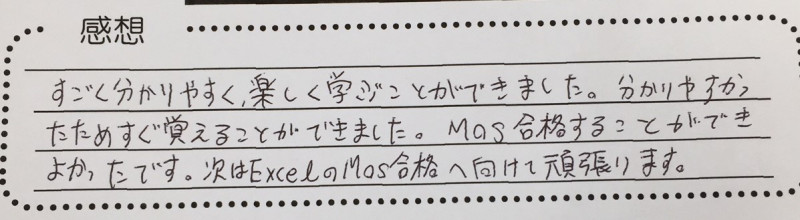 感想
すごく分かりやすく、楽しく学ぶことができました。分かりやすかっ
たためすぐ覚えることができました。Mos合格することができ
よかったです。次はExcelのMos合格へ向けて頑張ります。